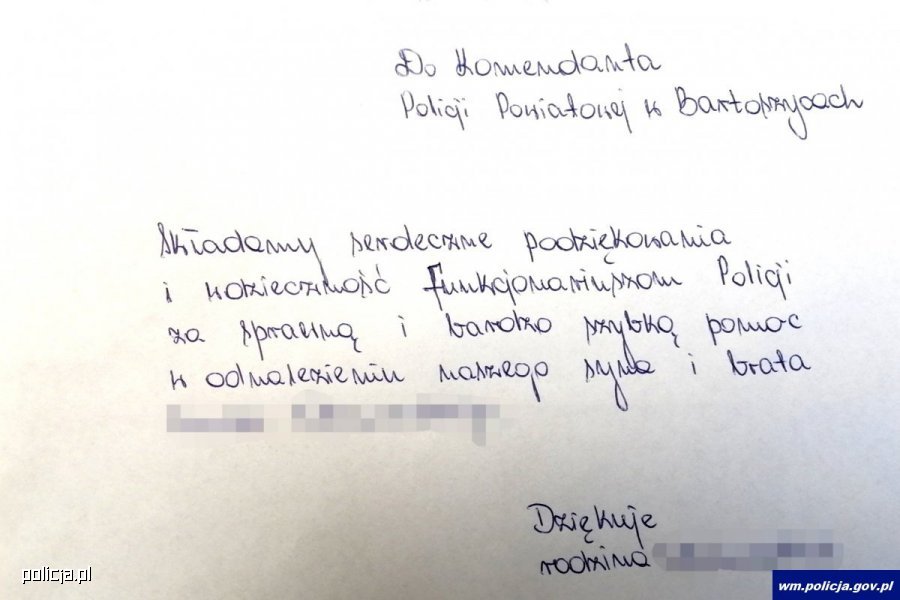 Do Komendanta
Policji Powiatowej w Bartoszycach
Składamy serdeczne podziękowania
i wdzięczność funkcjonariuszom Policji
za sprawną i bardzo szybką pomoc
w odnalezieniu naszego syna i brata
Dziękuje
rodzina
policja.pl
wm.policja.gov.pl